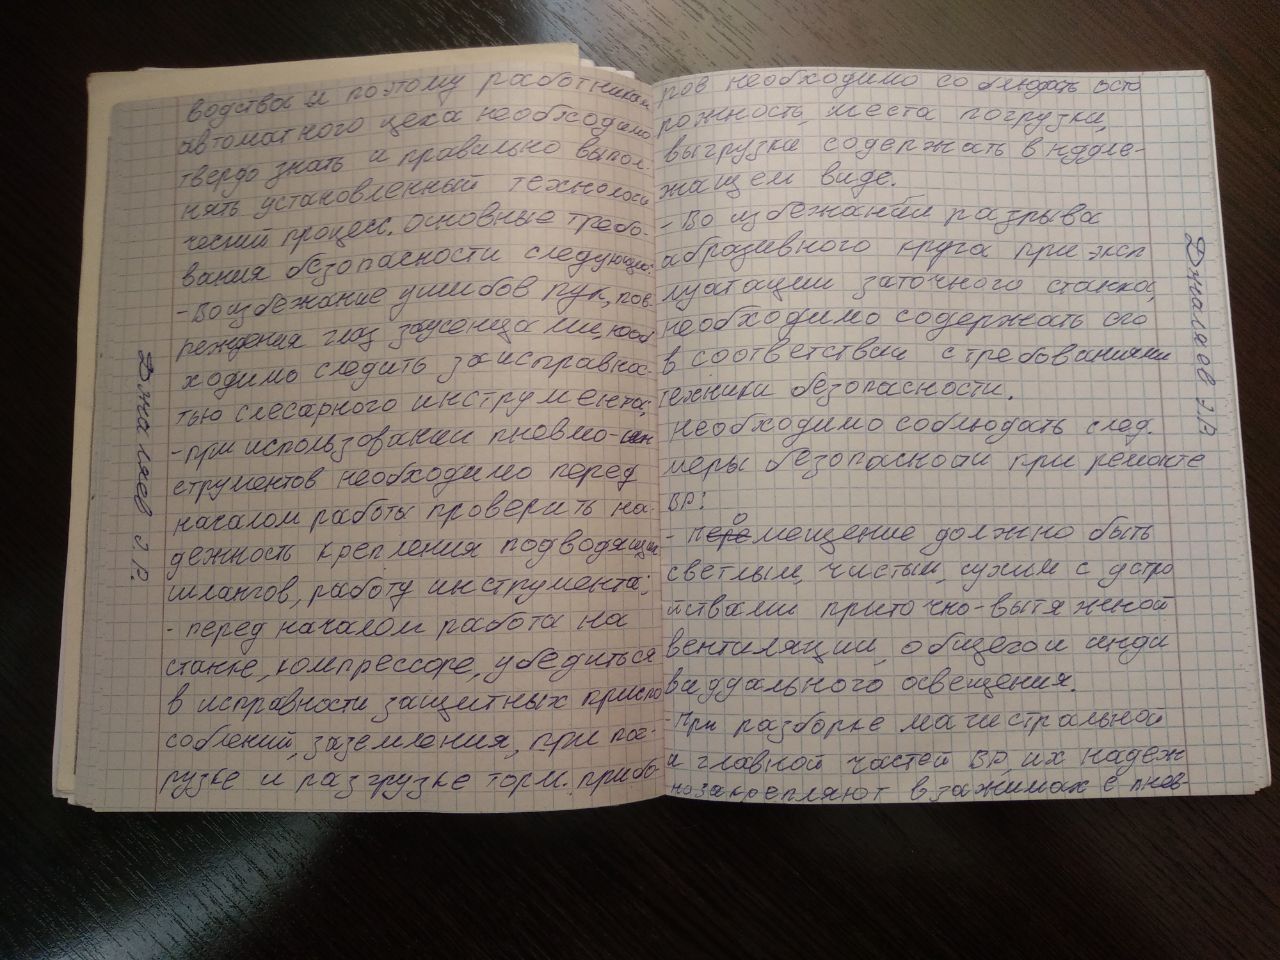 водства и поэтому работникам
автоматного цеха необходимо
твердо знать и правильно выпол-
нять установленный технологи
ческий процесс. основные требо-
вания безопасности следующие:
- Во избежание ушибов рук, пов-
реждения глаз заусенцами, необ
ходимо следить за исправнос-
тью слесарного инструмента;
- при использовании пневмо-ин
струментов необходимо перед
началом работы проверить на-
дежность крепления подводящих
шлангов, работу инструмента;
- перед началом работа на
станке, компрессоре, убедиться
в исправности защитных приспо
соблений, заземления, при пог-
рузке и разгрузке торм. прибо-
Джаляев Э.Р.
ров необходимо соблюдать осто
рожность, места погрузки,
выгрузки содержать в надле-
жащем виде.
- Во избежании разрыва
абразивного круга при эксп
луатации заточного станка,
необходимо содержать его
в соответствии с требованиями
техники безопасности.
необходимо соблюдать след.
меры безопасности при ремонте
ВР:
- помещение должно быть
светлым, чистым, сухим с устро
йствами приточно-вытяжной
вентиляции, общего и инди
видуального освещения.
- При разборке магистральной
и главной частей ВР, их надеж
но закрепляют в зажимах с пнев-
Джаляев Э.Р